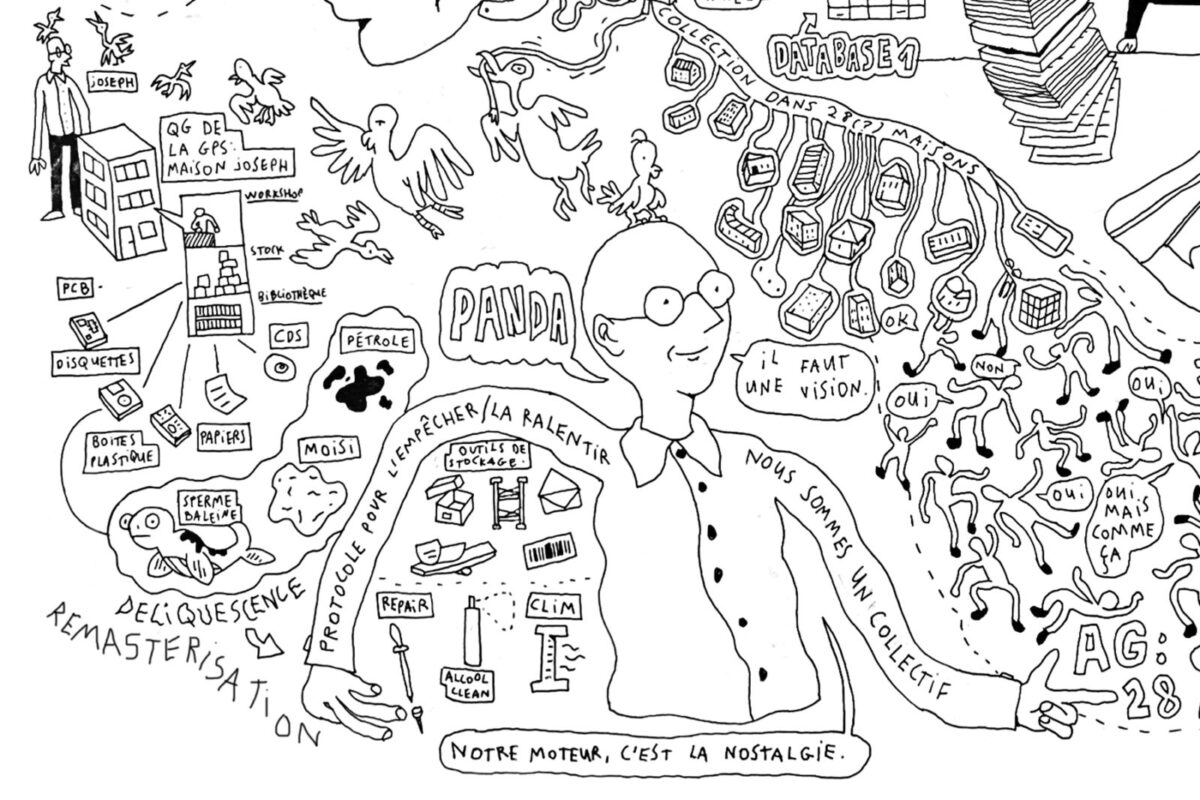 COLLECTION DANS 28(?) MAISONS
DATABASE 1
JOSEPH
QG DE
LA GPS:
MAISON JOSEPH
WORKSHOP
STOCK
BIBLIOTHÈQUE
PCB
DISQUETTES
BOITES
PLASTIQUE
PAPIERS
CDS
PÉTROLE
MOISI
SPERME
BALEINE
DELIQUESCENCE
REMASTERISATION
PANDA
IL FAUT
UNE VISION.
PROTOCOLE POUR L'EMPÊCHER/LA RALENTIR
NOUS SOMMES UN COLLECTIF
OUTILS DE
STOCKAGE.
REPAIR
ALCOOL
CLEAN
CLIM
NOTRE MOTEUR, C'EST LA NOSTALGIE.
OK
NON
OUI
OUI
OUI
OUI
MAIS
COMME
ÇA
AG:
28